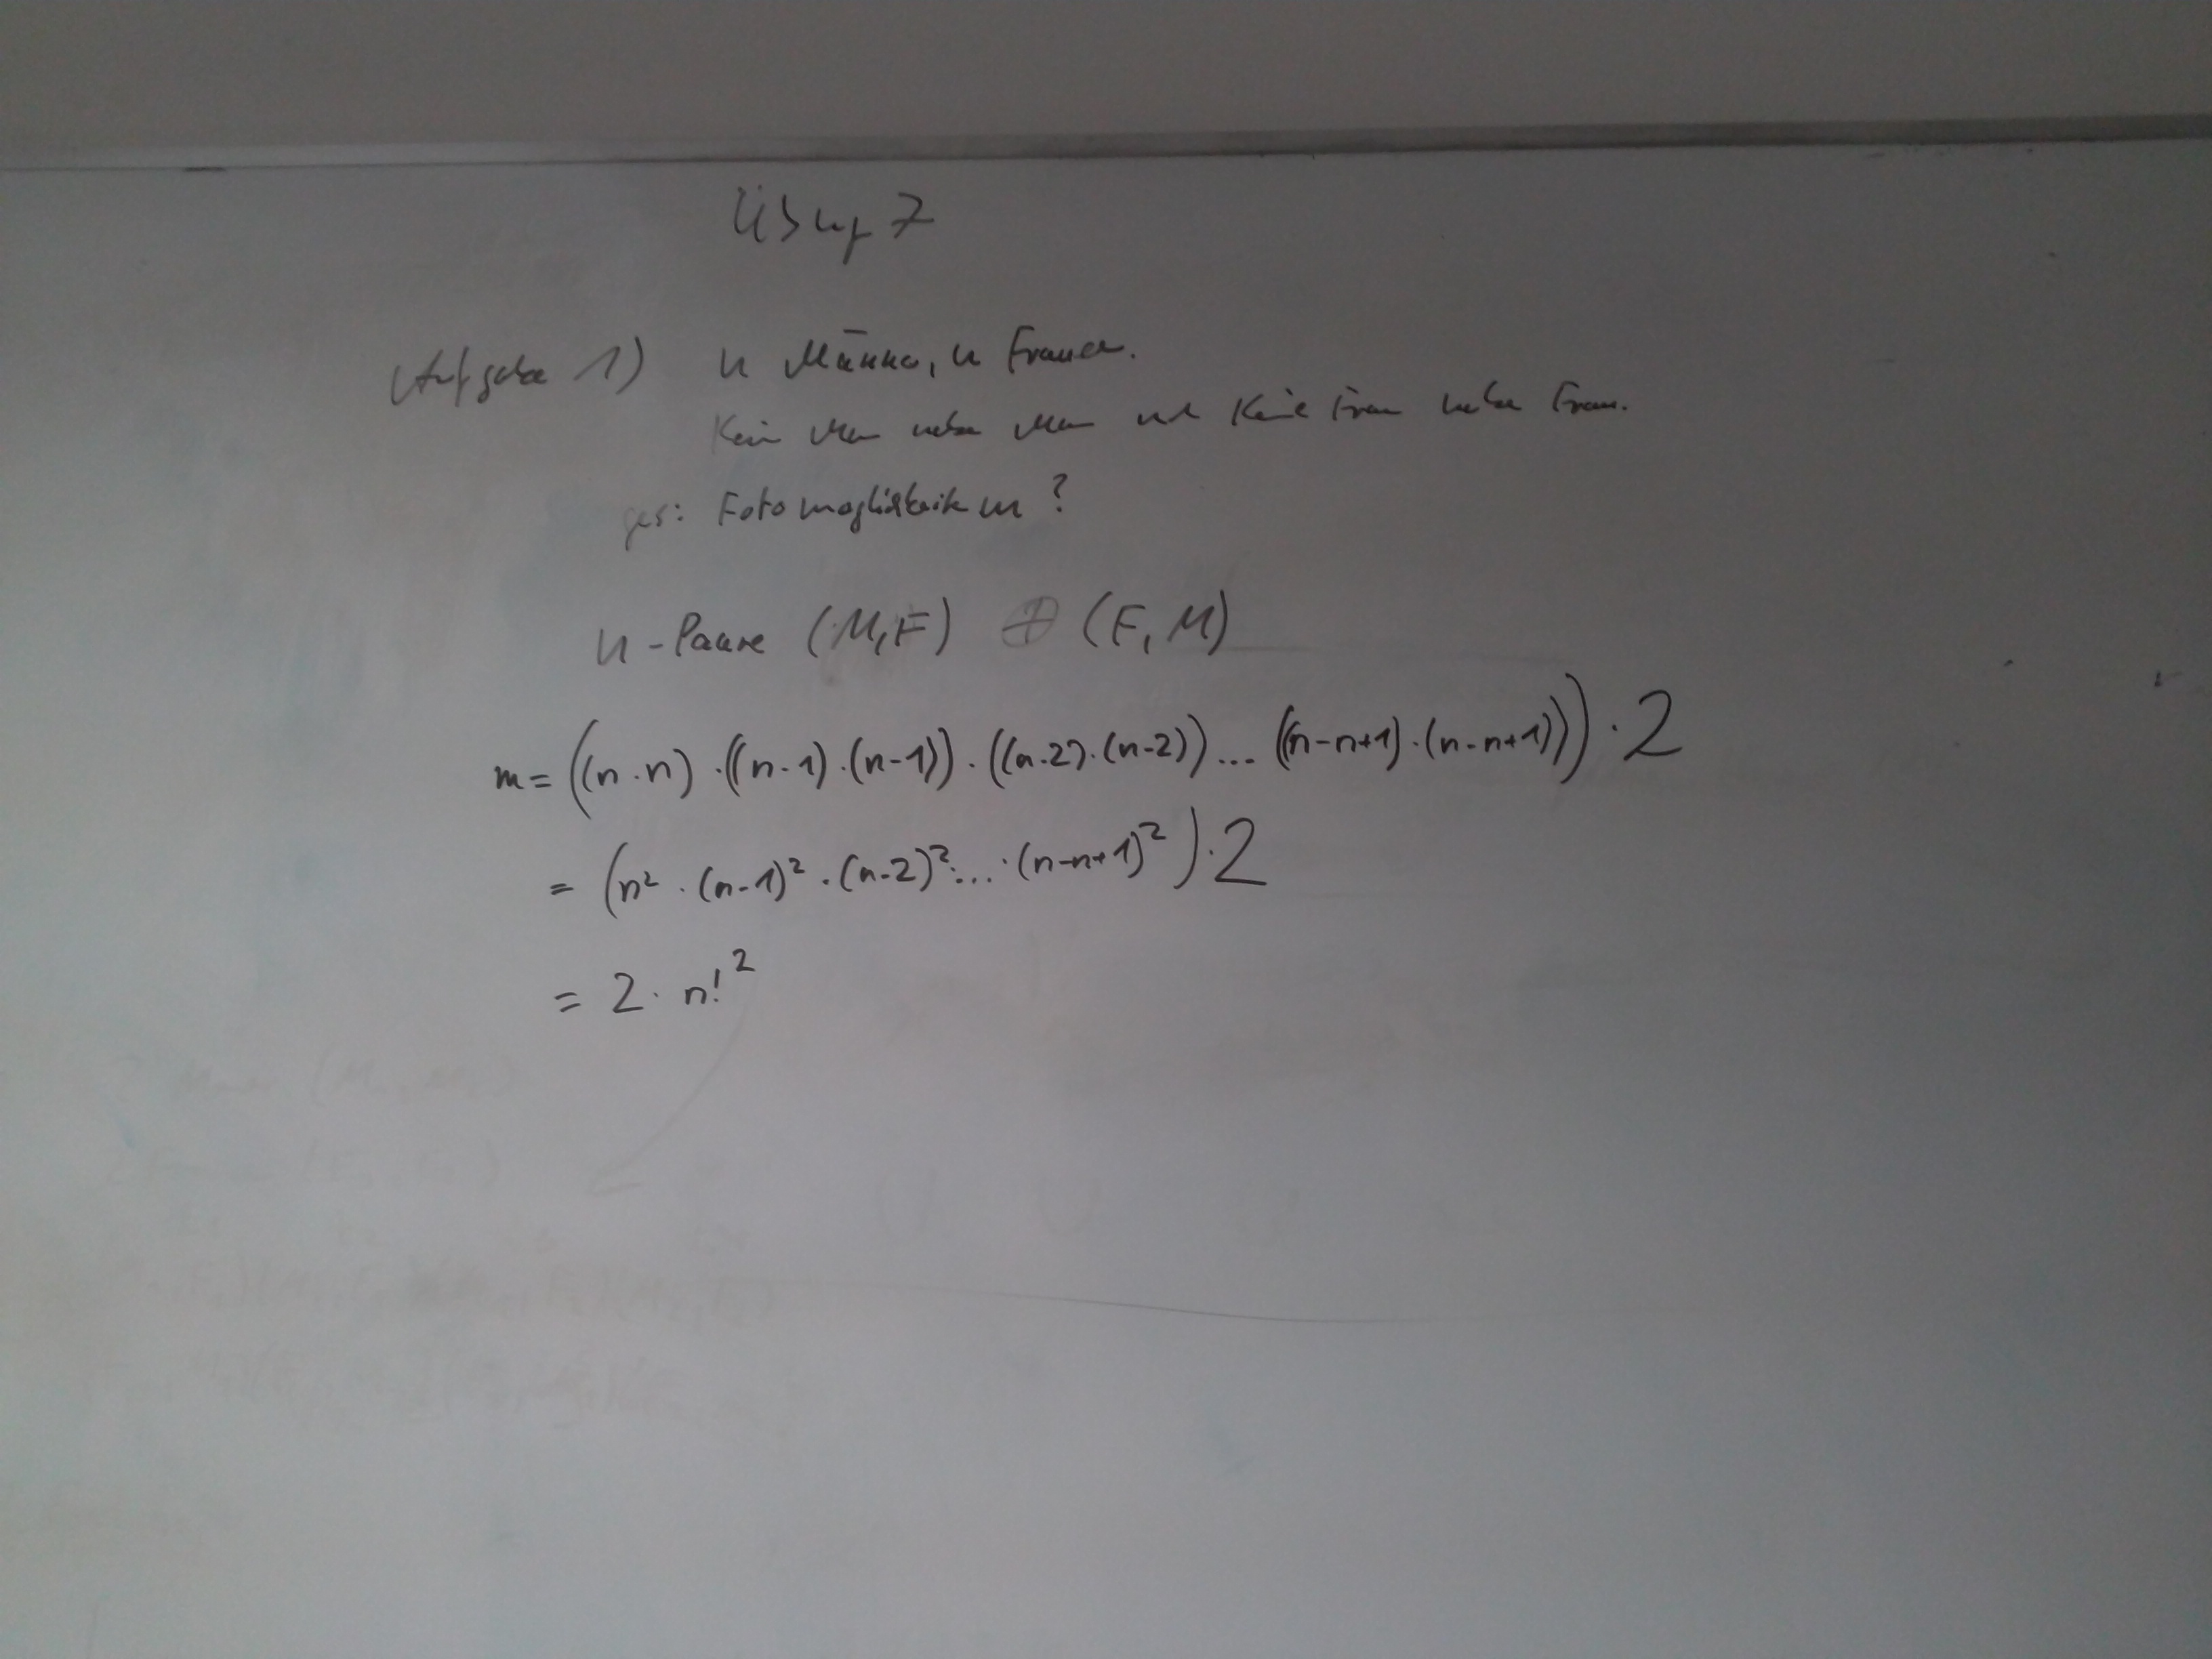 Übung 7
Aufgabe 1) n Männer, n Frauen.
Kein Mann neben Mann und Keine Frau neben Frau.
ges: Fotomöglichkeiten m?
n-Paare (M,F) ⊕ (F,M)
m = ((n·n)·((n-1)·(n-1))·((n-2)·(n-2))...((n-n+1)·(n-n+1)))·2
= (n²·(n-1)²·(n-2)²·...·(n-n+1)²)·2
= 2·n!²